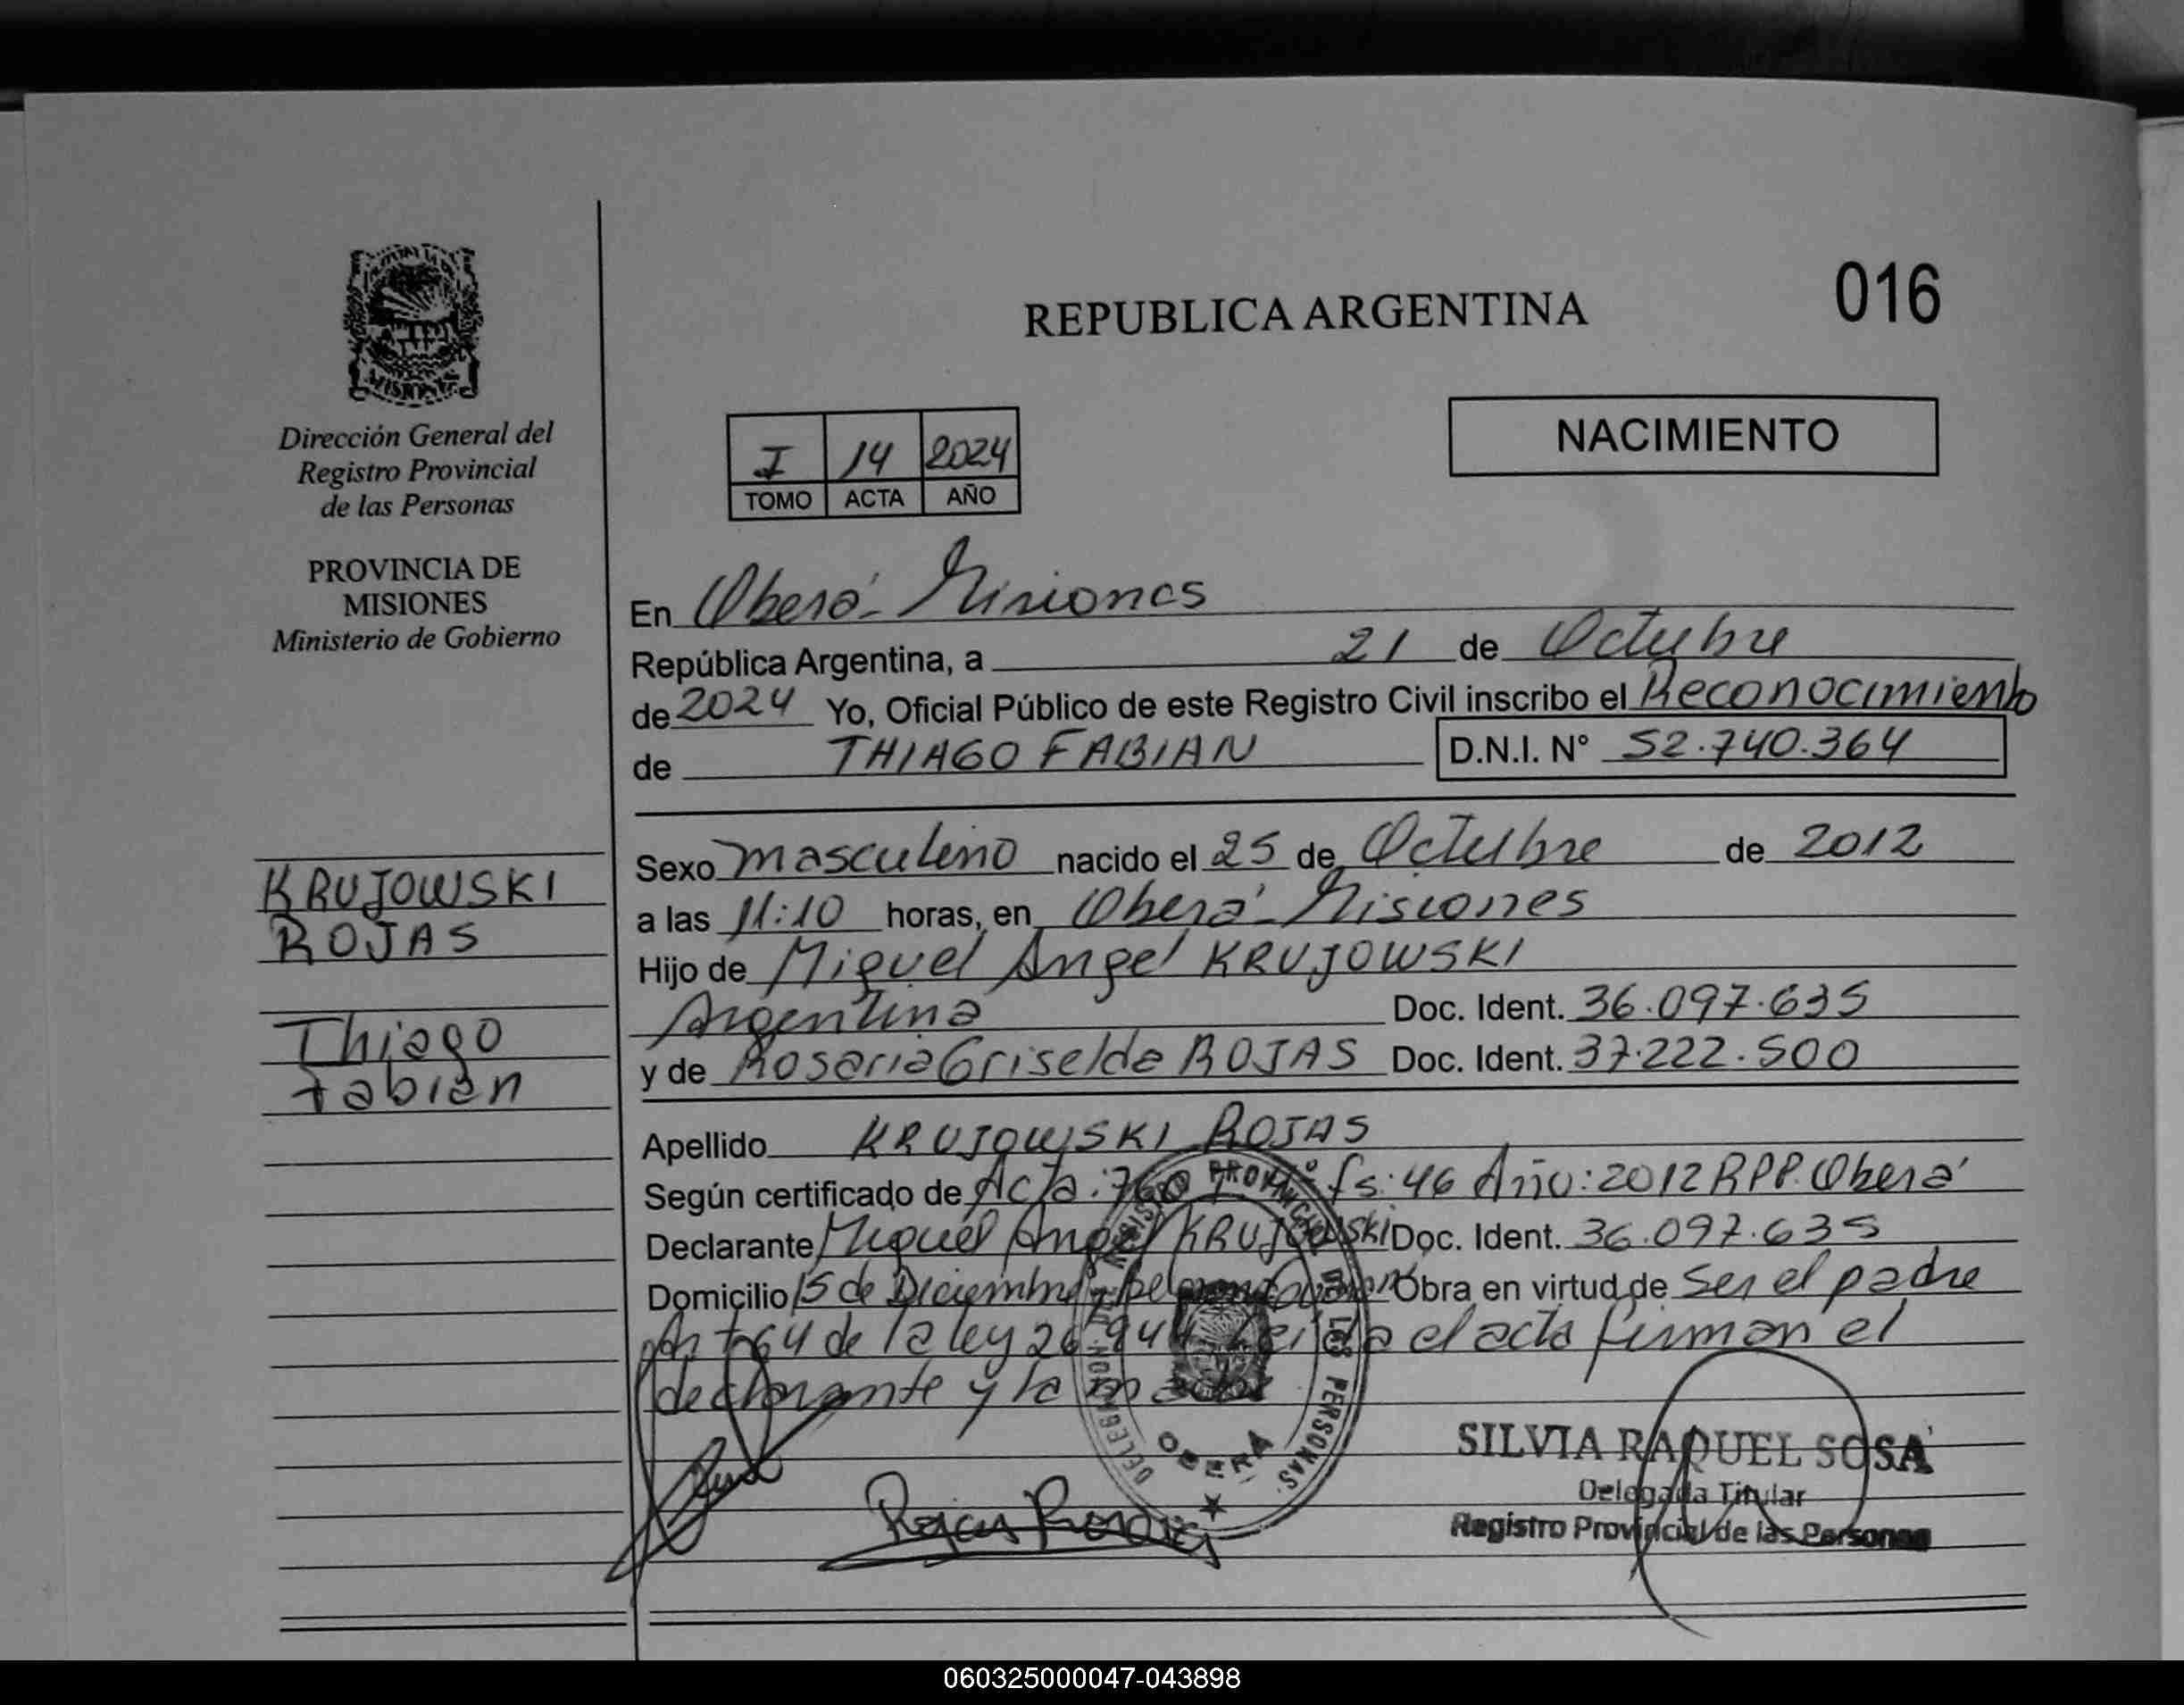 016
REPUBLICA ARGENTINA
NACIMIENTO
Dirección General del
Registro Provincial
de las Personas
PROVINCIA DE
MISIONES
Ministerio de Gobierno
I 14 2024
TOMO ACTA AÑO
En Oberá - Misiones
República Argentina, a 21 de Octubre
de 2024 Yo, Oficial Público de este Registro Civil inscribo el Reconocimiento
de THIAGO FABIAN D.N.I. N° 52.740.364
Sexo masculino nacido el 25 de Octubre de 2012
a las 11:10 horas, en Oberá - Misiones
Hijo de Miguel Angel KRUJOWSKI
Argentina Doc. Ident. 36.097.635
y de Rosaria Griselda ROJAS Doc. Ident. 37.222.500
KRUJOWSKI
ROJAS
Thiago
Fabian
Apellido KRUJOWSKI ROJAS
Según certificado de Acta: 760 fs: 46 Año: 2012 RPP. Oberá
Declarante Miguel Angel KRUJOWSKI Doc. Ident. 36.097.635
Domicilio 15 de Diciembre Obra en virtud de ser el padre
64 de la ley 26.944 Leída el acta firman el
declarante y la
REGISTRO PROVINCIAL DE LAS PERSONAS
OBERÁ
Rojas
SILVIA RAQUEL SOSA
Delegada Titular
Registro Provincial de las Personas
060325000047-043898